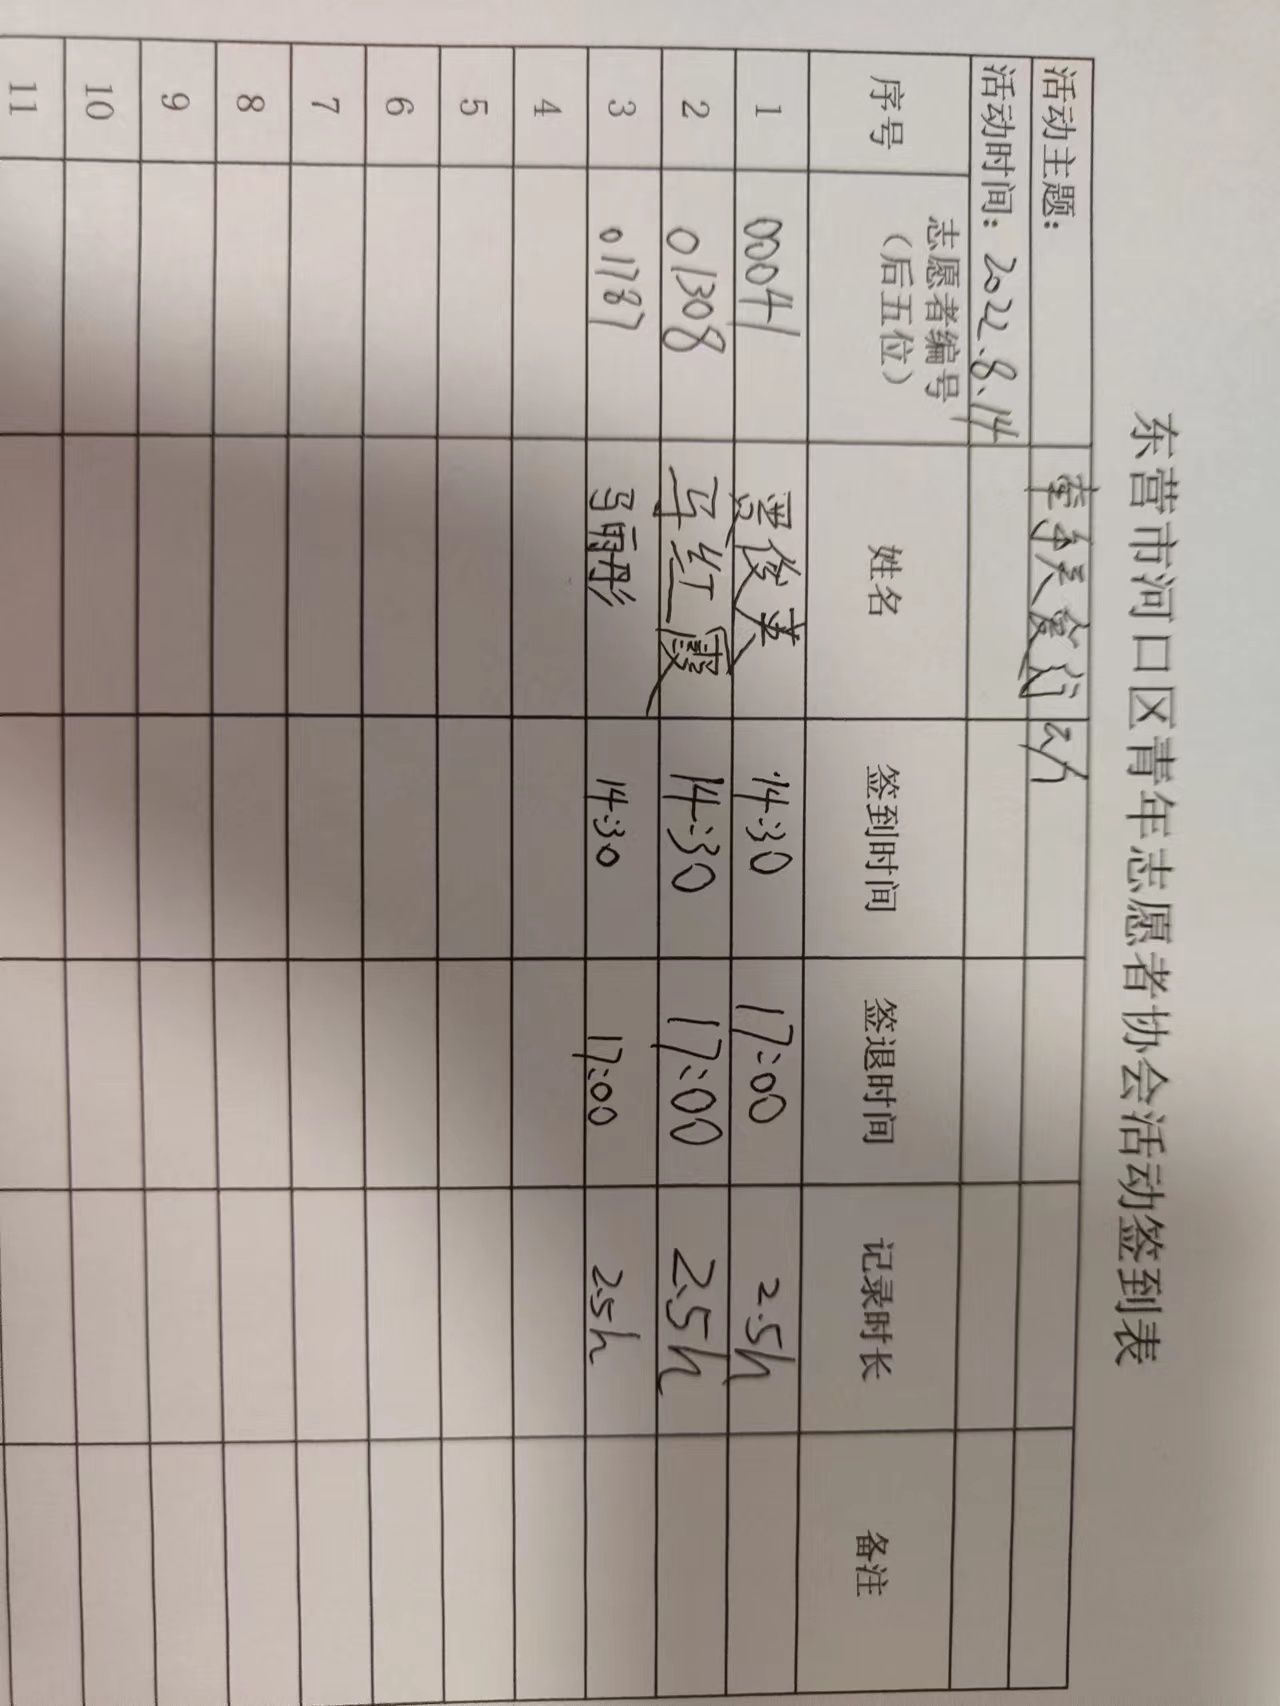 东营市河口区青年志愿者协会活动签到表
活动主题: 牵手关爱行动
活动时间: 2022.8.14
序号 志愿者编号（后五位） 姓名 签到时间 签退时间 记录时长 备注
1 00041 贾俊英 14:30 17:00 2.5h
2 01308 马红霞 14:30 17:00 2.5h
3 01787 马雨彤 14:30 17:00 2.5h
4
5
6
7
8
9
10
11